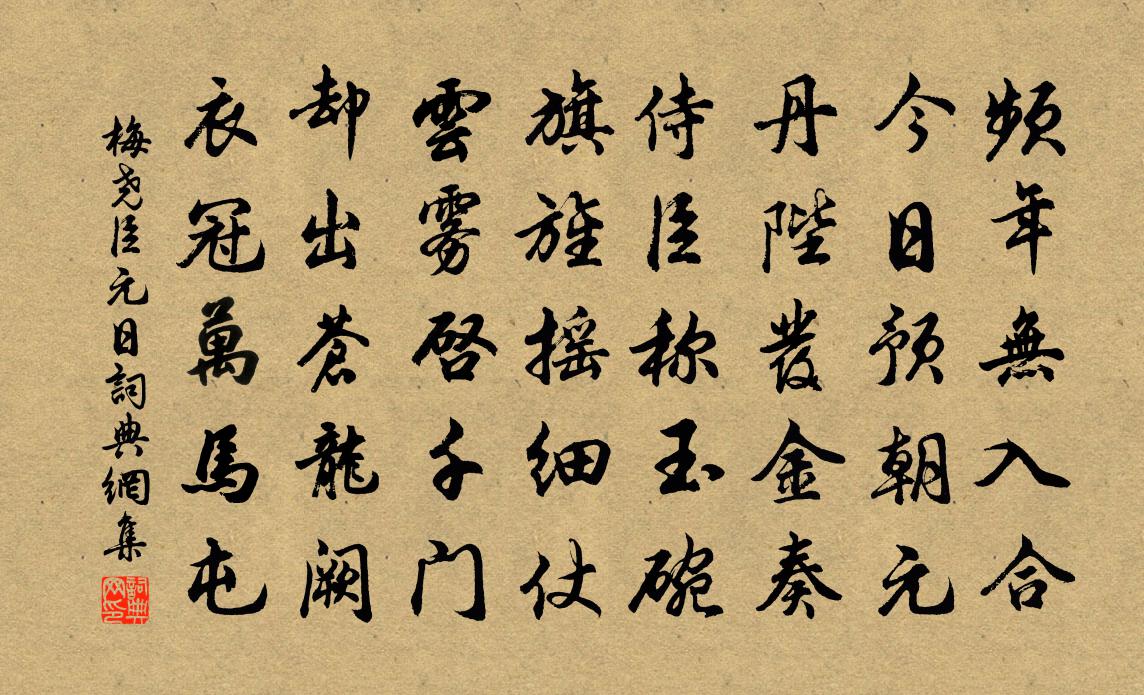 頻年無入合
今日預朝元
丹陛發金奏
侍臣称玉碗
旗旌摇細仗
雲雾啓千门
却出蒼龍阙
衣冠萬馬屯
梅尧臣元日詞典網集
詞典网印